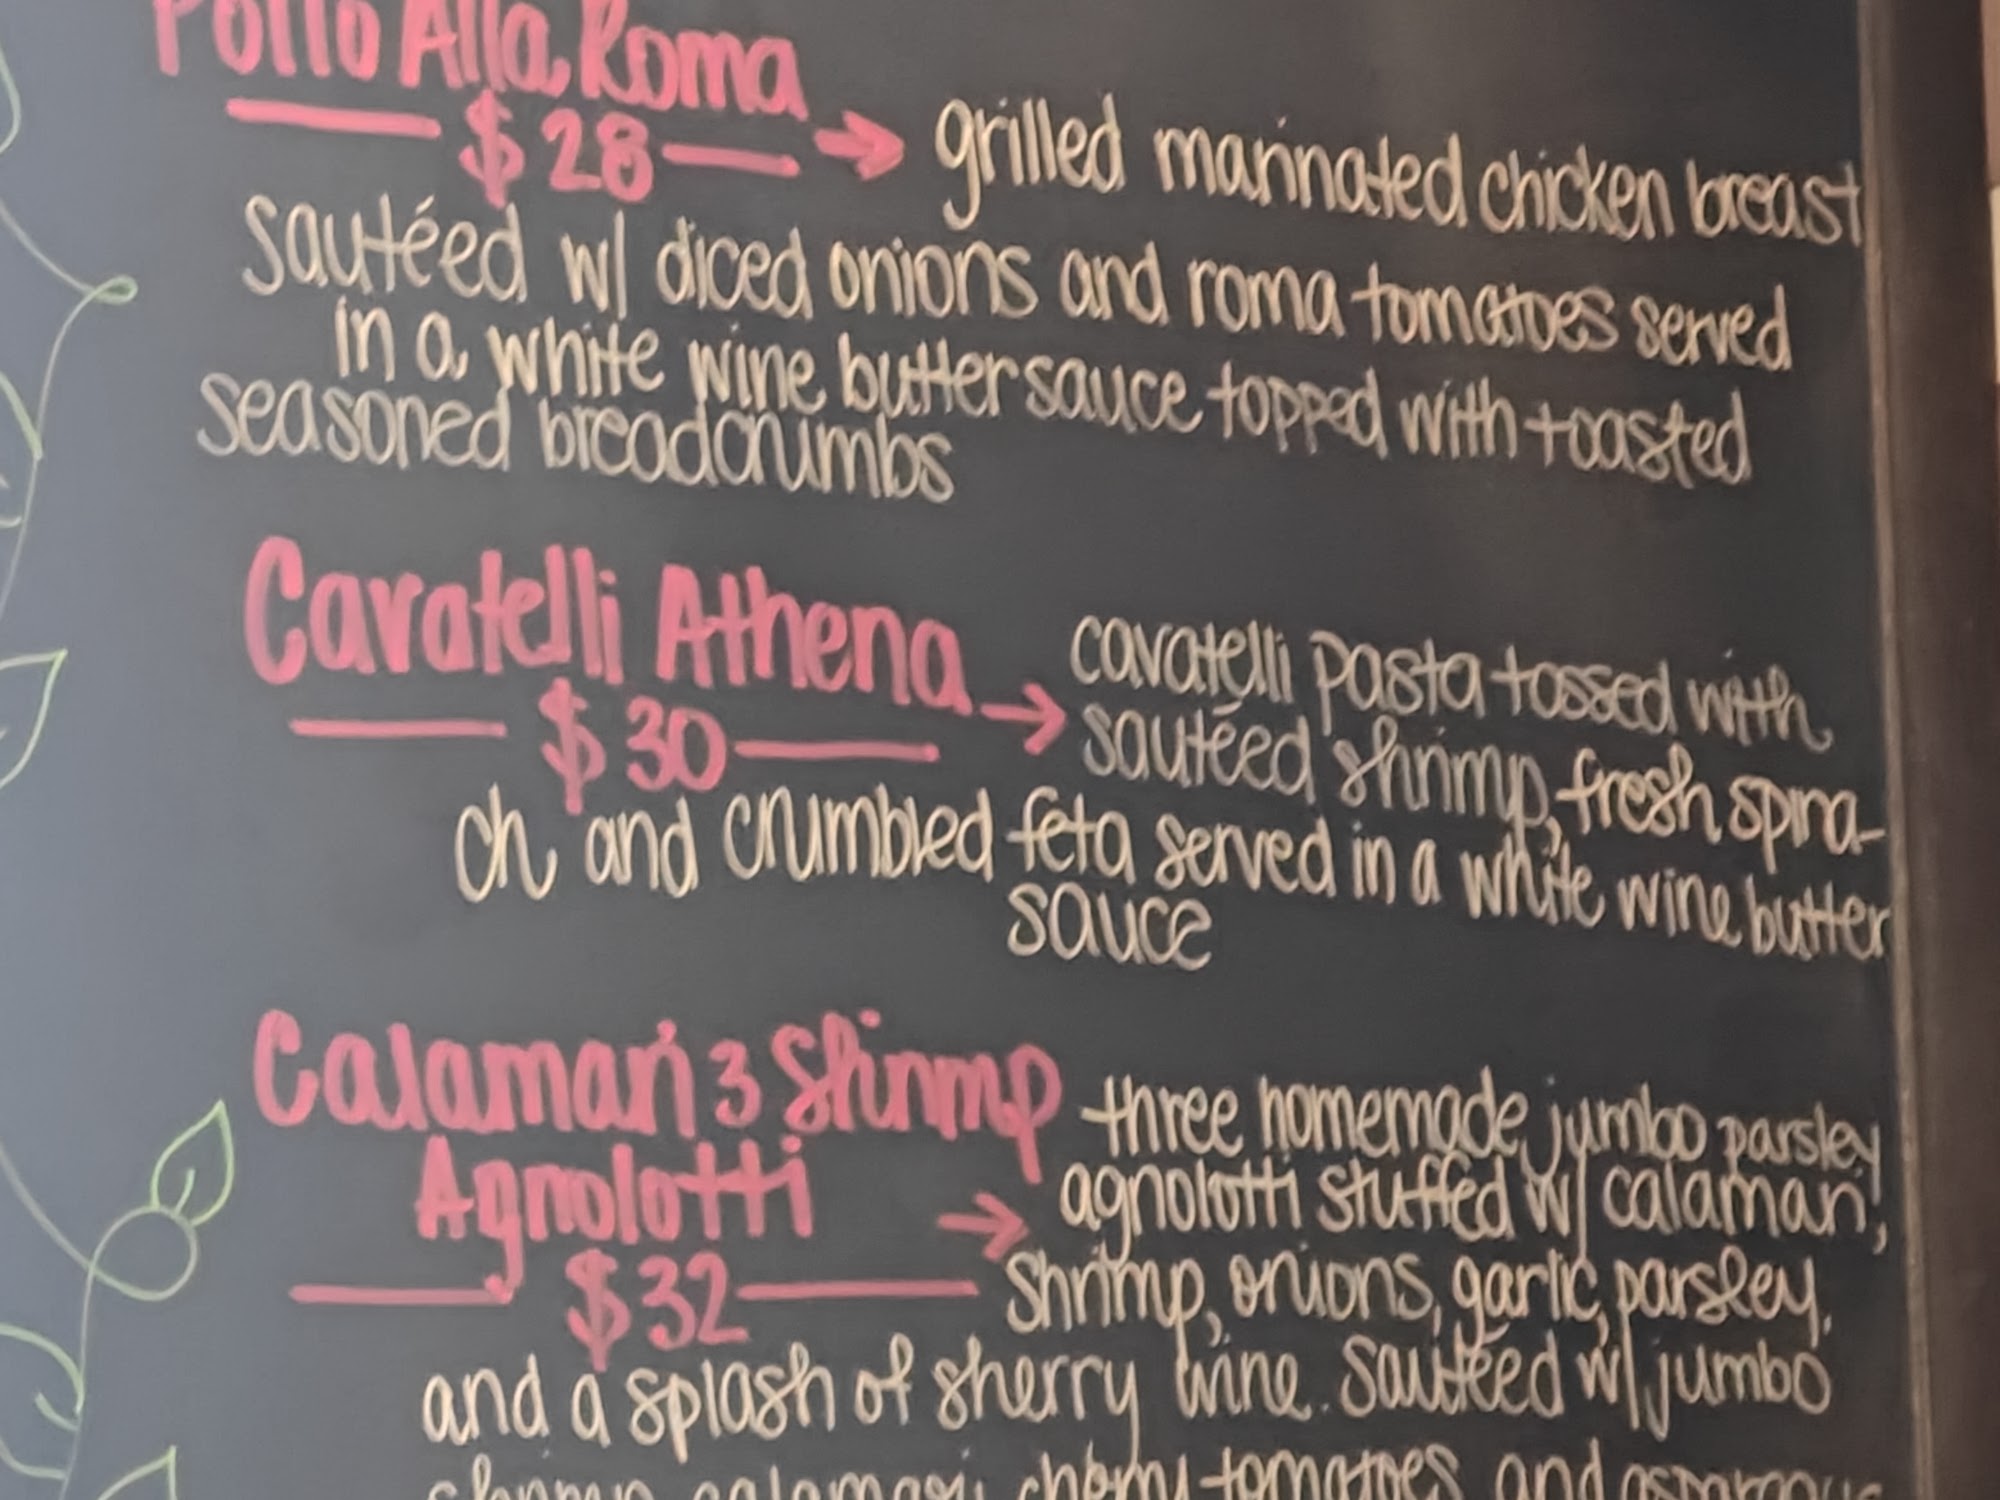 Pollo Alla Roma
$28 → grilled marinated chicken breast
sautéed w/ diced onions and roma tomatoes served
in a white wine butter sauce topped with toasted
seasoned breadcrumbs
Cavatelli Athena
$30 → cavatelli pasta tossed with
sautéed shrimp, fresh spina-
ch and crumbled feta served in a white wine butter
sauce
Calamari & Shrimp
Agnolotti
$32 → three homemade jumbo parsley
agnolotti stuffed w/ calamari,
shrimp, onions, garlic, parsley,
and a splash of sherry wine. Sautéed w/ jumbo
shrimp, calamari, cherry tomatoes, and asparagus